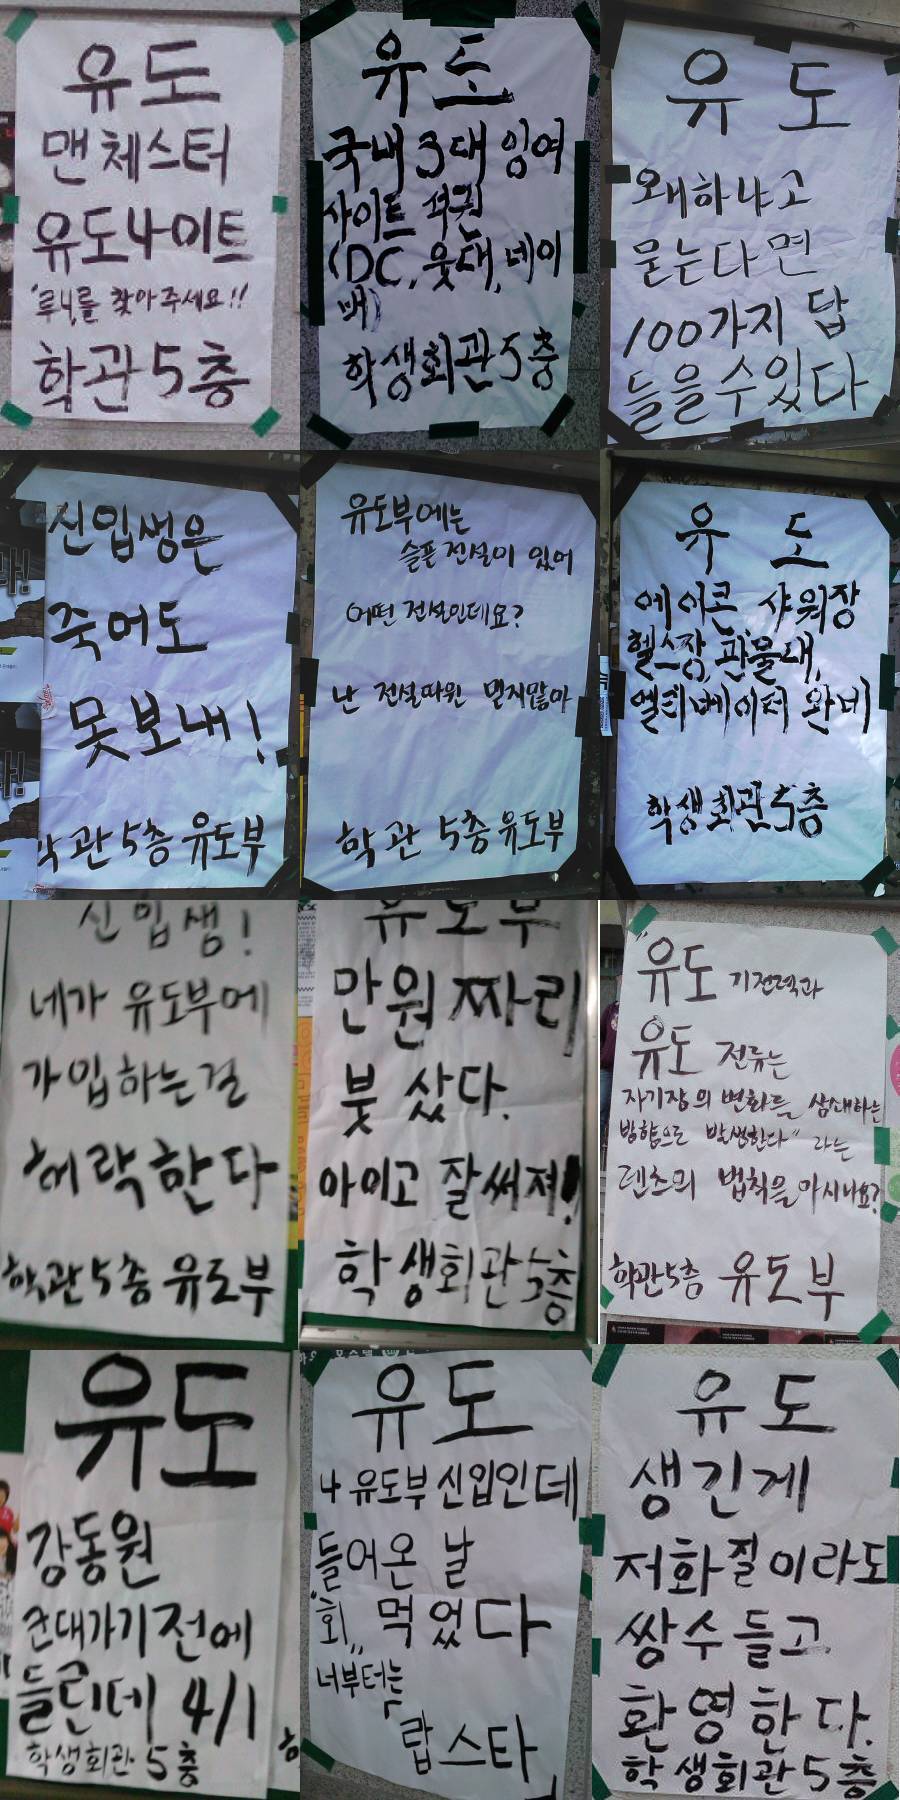 유도
맨체스터
유도나이트
'루니'를 찾아주세요!!
학관 5층
유도
국내 3대 잉여
사이트 석권
(DC, 웃대, 네이
버)
학생회관 5층
유도
왜하냐고
묻는다면
100가지 답
들을수있다
신입생은
죽어도
못보내!
학관 5층 유도부
유도부에는
슬픈 전설이 있어
어떤 전설인데요?
난 전설따윈 믿지않아
학관 5층 유도부
유도
에어콘, 샤워장
헬스장, 관물대,
엘리베이터 완비
학생회관 5층
신입생!
네가 유도부에
가입하는걸
허락한다
학관 5층 유도부
유도부
만원짜리
붓 샀다.
아이고 잘써져!
학생회관 5층
"유도 기전력과
유도 전류는
자기장의 변화를 상쇄하는
방향으로 발생한다" 라는
렌츠의 법칙을 아시나요?
학관 5층 유도부
유도
강동원
군대가기전에
들린데 4/1
학생회관 5층
유도
나 유도부 신입인데
들어온 날
"회" 먹었다
너부터는
랍스타
유도
생긴게
저화질이라도
쌍수들고
환영한다.
학생회관 5층